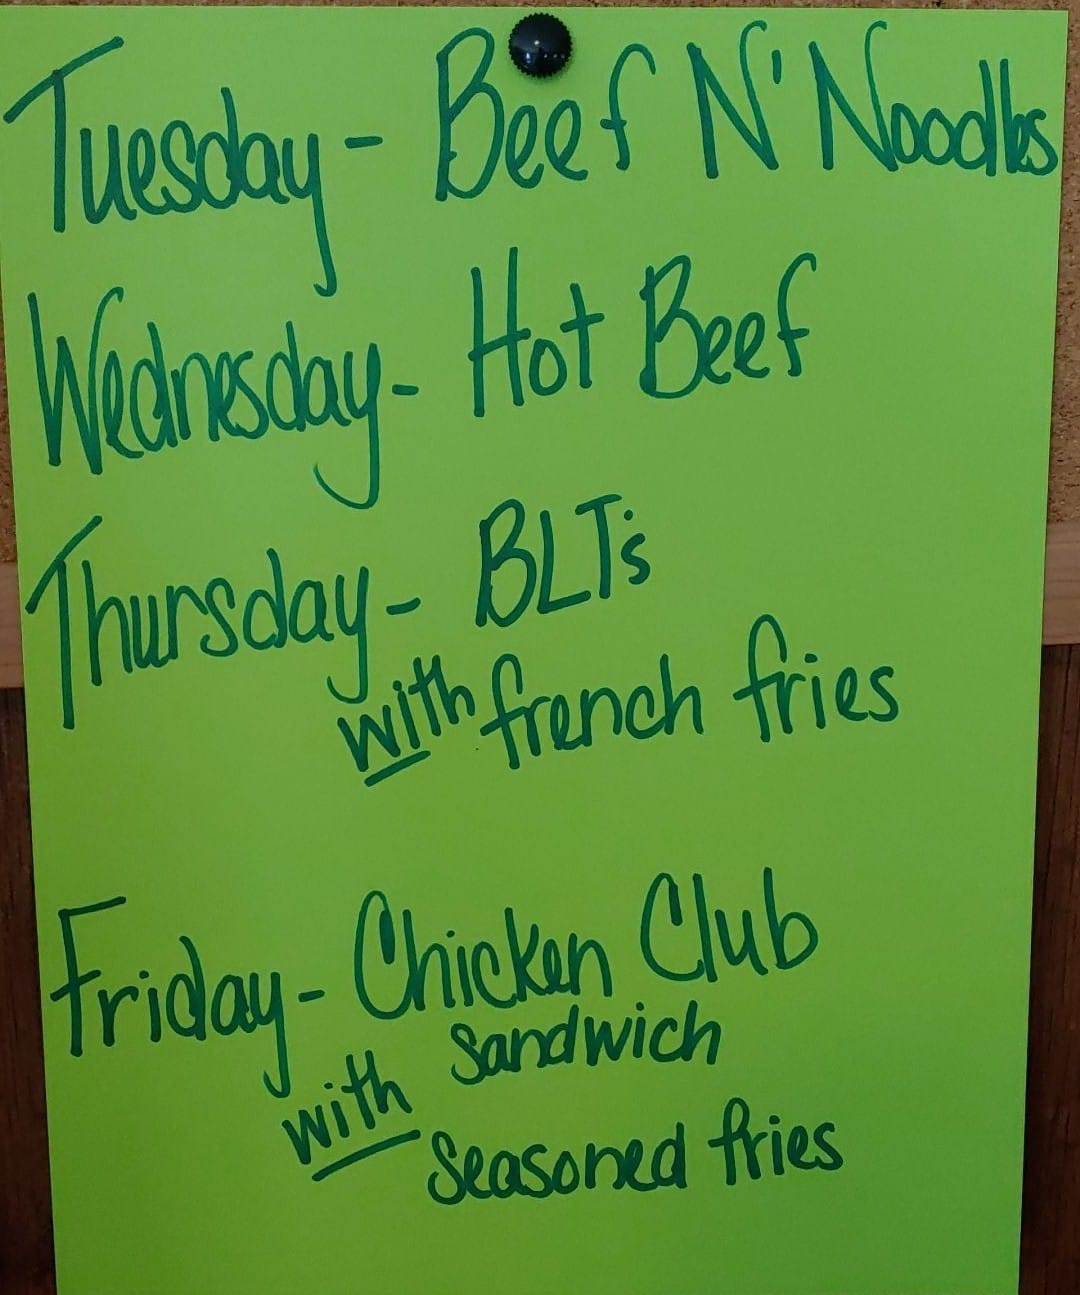 Tuesday - Beef N' Noodles
Wednesday - Hot Beef
Thursday - BLT's
with french fries
Friday - Chicken Club
Sandwich
with
Seasoned fries